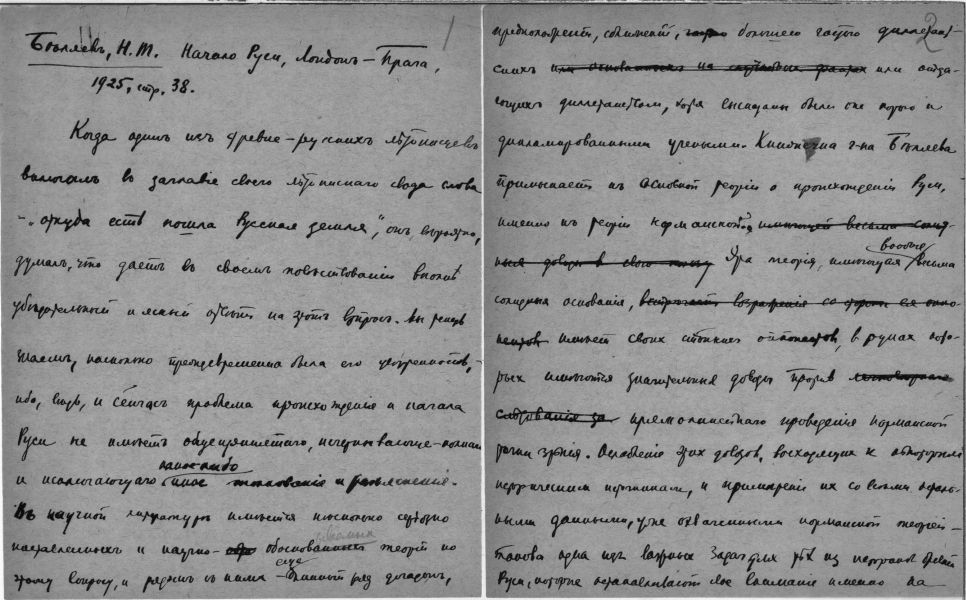 1
Бѣляевъ, Н.Т. Начало Руси, Лондонъ – Прага,
1925, стр. 38.
Когда одинъ изъ древне-русскихъ лѣтописцевъ
въ заглавіе своего лѣтописнаго свода слова
– „откуда есть пошла Русская земля“, онъ, вѣроятно,
думалъ, что даетъ въ своемъ повѣствованіи вполнѣ
убѣдительный и ясный отвѣтъ на этотъ вопросъ. Мы теперь
знаемъ, насколько преждевременна была его увѣренность,
ибо, вѣдь, и сейчасъ проблема происхожденія и начала
Руси не имѣетъ общепринятаго,
и исключающаго какое-либо иное толкованіе и разъясненія.
Въ научной литературѣ имѣется нѣсколько серьезно
и научно- обоснованныхъ теорій по
этому вопросу, и рядомъ съ ними еще длинный рядъ догадокъ,
2
предположеній, сближеній, большею частью диллетант-
скихъ или основанныхъ на фактахъ или
диллетантизмомъ, хотя высказаны были онѣ порою и
дипломированными учеными. Книжечка г-на Бѣляева
примыкаетъ къ основной теоріи о происхожденіи Руси,
именно къ теоріи норманской, имѣющей весьма
доводы въ свою пользу Эта теорія, имѣющая вообще весьма
солидныя основанія, встрѣчаетъ возраженія со стороны ея оппо-
нентовъ имѣетъ своихъ стойкихъ оппонентовъ, въ рукахъ кото-
рыхъ имѣются значительные доводы противъ
слѣдованія за прямолинейнаго проведенія норманской
точки зрѣнія. Ослабленіе этихъ доводовъ, восходящихъ къ
историческимъ источникамъ, и примиреніе ихъ со всѣми
данными, уже охваченными норманской теоріей –
такова одна изъ важныхъ задачъ для тѣхъ изъ историковъ древней
Руси, которые останавливаютъ свое вниманіе именно на